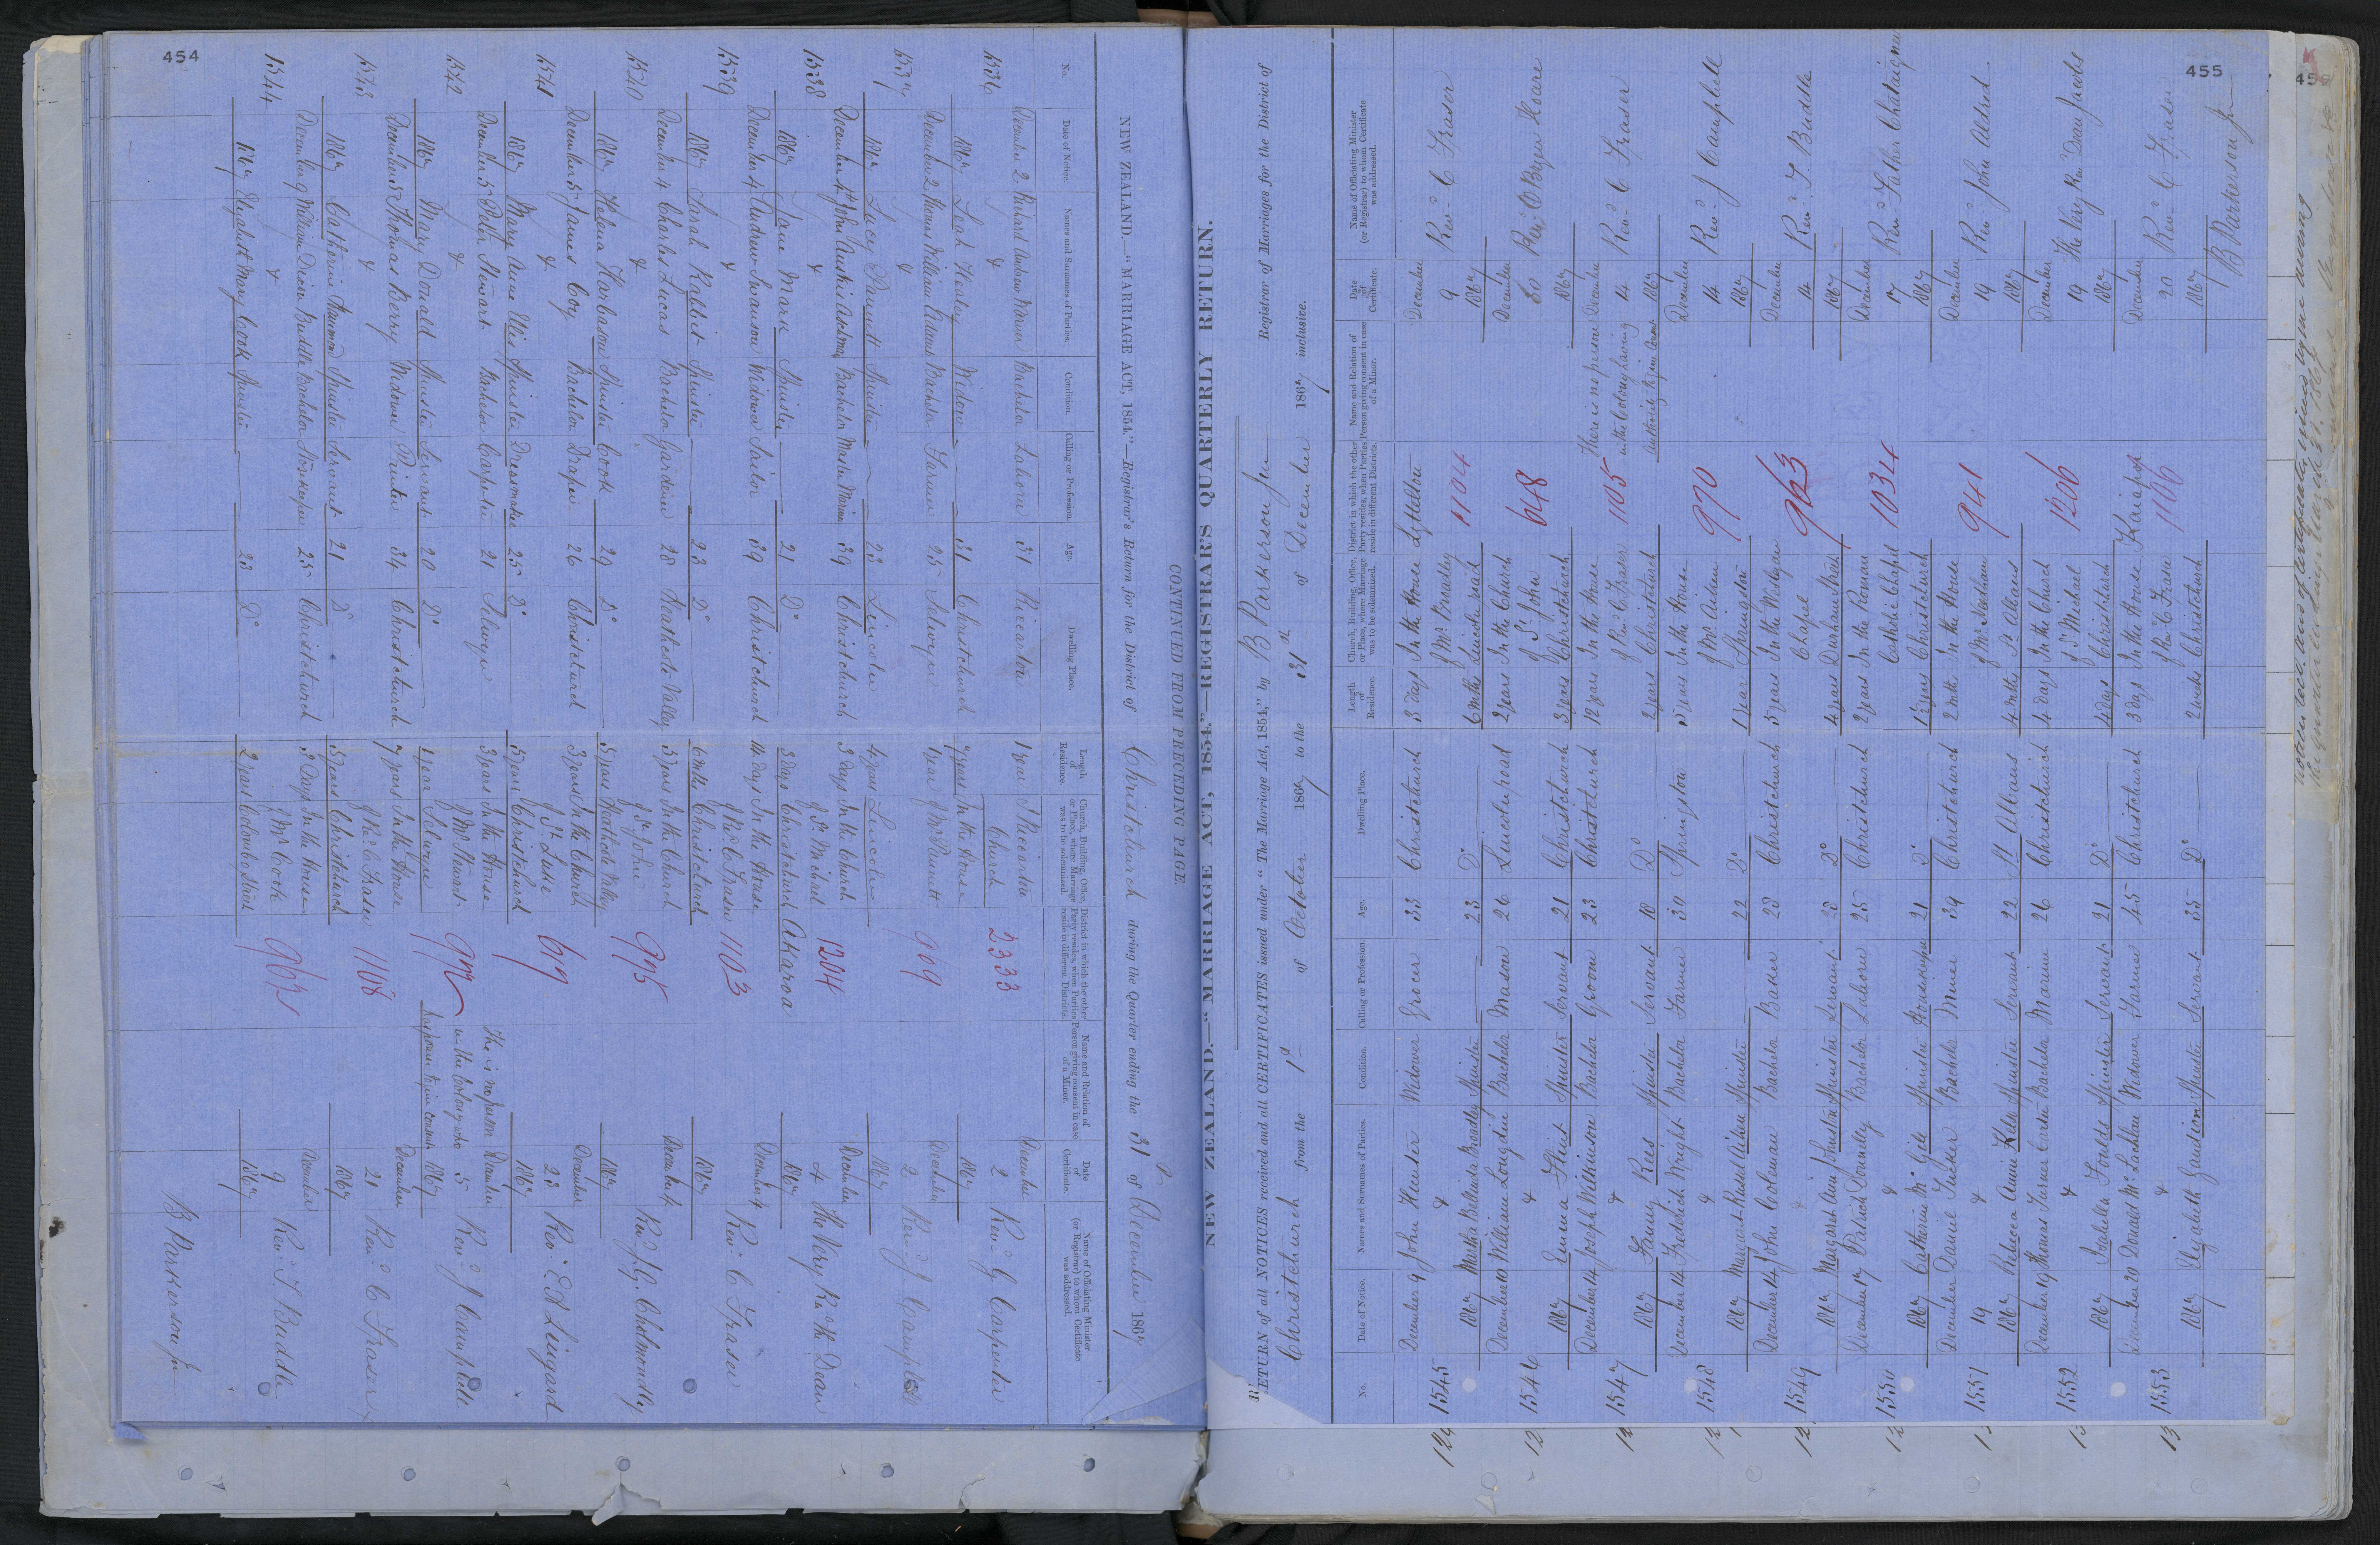 454
NEW ZEALAND.—"MARRIAGE ACT, 1854."—Registrar's Return for the District of Christchurch during the Quarter ending the 31st of December 1867
CONTINUED FROM PRECEDING PAGE.
No. Date of Notice. Names and Surnames of Parties. Condition. Calling or Profession. Age. Dwelling Place. Length of Residence. Church, Building, Office, or Place, where Marriage was to be solemnized. District in which the other Party resides, when Parties reside in different Districts. Name and Relation of Person giving consent in case of a Minor. Date of Certificate. Name of Officiating Minister (or Registrar) to whom Certificate was addressed.
1536 December 2 Richard Andrew Warner Bachelor Laborer 31 Riccarton 1 year Riccarton 2333 December 2 Revd G Carpenter
& Church
1867 Leah Healey Widow 31 Christchurch 7 years In the House 1867
1537 December 2 Thomas William Adams Bachelor Farmer 25 Selwyn 1 year of Mr Paunett 909 December 2 Revd J Campbell
&
1867 Lucy Paunett Spinster 23 Lincoln 4 years Lincoln 1867
1538 December 4th John Bachelor Master Mariner 39 Christchurch 3 days In the Church 1204 December 4 The Very Revd the Dean
& of St Michael
1867 Jane Marks Spinster 21 Do 3 days Christchurch Akaroa 1867
1539 December 4 Andrew Swanson Widower Sailor 39 Christchurch 14 days In the House 1103 December 4 Revd C Fraser
& of Revd C Fraser
1867 Sarah Rabbit Spinster 23 Do 6 mths Christchurch 1867
1540 December 4 Charles Lucas Bachelor Gardener 28 Heathcote Valley 3 years In the Church 995 December 4 Revd G Cholmondley
& of St John
1867 Helena Harbadow Spinster Cook 29 Do 5 years Heathcote Valley 1867
1541 December 5 James Coy Bachelor Draper 26 Christchurch 3 years In the Church 619 December 23 Revd E A Lingard
& of St Luke
1867 Mary Anne Ellis Spinster Dressmaker 25 Do 5 years Christchurch 1867
1542 December 5 Peter Stewart Bachelor Carpenter 21 Selwyn 3 years In the House 972 The is no person in the Colony who has power to give consent December 5 1867 Revd J Campbell
& of Mr Stewart
1867 Mary Donald Spinster Servant 20 Do 1 year Selwyn
1543 December 5 Thomas Berry Widower Printer 34 Christchurch 7 years In the House 1108 December 21 Revd C Fraser
& of Revd C Fraser
1867 Catherine Spinster Servant 21 Do 5 years Christchurch 1867
1544 December 9 William Dixon Buddle Bachelor Storekeeper 25 Christchurch 3 Days In the House 962 December 9 Revd T Buddle
& of Mr Cook
1867 Elizabeth Mary Cook Spinster 23 Do 2 years Colombo Street 1867
B Parkerson Jr
455
NEW ZEALAND.—"MARRIAGE ACT, 1854."—REGISTRAR'S QUARTERLY RETURN.
RETURN of all NOTICES received and all CERTIFICATES issued under "The Marriage Act, 1854," by B Parkerson Jun Registrar of Marriages for the District of
Christchurch from the 1st of October 1867 to the 31th of December 1867 inclusive.
No. Date of Notice. Names and Surnames of Parties. Condition. Calling or Profession. Age. Dwelling Place. Length of Residence. Church, Building, Office, or Place, where Marriage was to be solemnized. District in which the other Party resides, when Parties reside in different Districts. Name and Relation of Person giving consent in case of a Minor. Date of Certificate. Name of Officiating Minister (or Registrar) to whom Certificate was addressed.
1545 December 9 John Hunter Widower Grocer 33 Christchurch 3 days In the House Lyttelton 1104 December 9 Revd C Fraser
& of Mr Broadley
1867 Martha Broadley Spinster 23 Do 6 mths Lincoln road 1867
1546 December 10 William Longdin Bachelor Mason 26 Lincoln road 2 years In the Church 648 December Revd O'Bryen Hoare
& of St John
1867 Emma Flint Spinster Servant 21 Christchurch 3 years Christchurch 1867
1547 December 14 Joseph Wilkinson Bachelor Groom 23 Christchurch 12 years In the House 1105 There is no person in the Colony having authority to give Consent December 14 1867 Revd C Fraser
& of Revd C Fraser
1867 Fanny Rees Spinster Servant 18 Do 2 years Christchurch
1548 December 14 Fredrick Wright Bachelor Farmer 30 Springston 5 years In the House 970 December 14 Revd J Campbell
& of Mr Aitken
1867 Margaret Russel Aitken Spinster 22 Do 1 year Springston 1867
1549 December 14 John Coleman Bachelor Baker 28 Christchurch 5 years In the Wesleyan 963 December 14 Revd T. Buddle
& Chapel
1867 Margaret Ann Johnston Spinster Servant 28 Do 4 years Durham Street 1867
1550 December 17 Patrick Dounley Bachelor Laborer 25 Christchurch 2 years In the Roman 1034 December 17 Revd Father Chataigner
& Catholic Chapel
1867 Catherine McGile Spinster Housekeeper 21 Do 1½ years Christchurch 1867
1551 December 19 Daniel Tucker Bachelor Miner 39 Christchurch 2 mths In the House 941 December 19 Revd John Aldred
& of Mr
1867 Rebecca Anna Kells Spinster Servant 22 St Albans 4 mths St Albans 1867
1552 December 19 Thomas Turner Carter Bachelor Mariner 26 Christchurch 4 days In the Church 1206 December 19 The Very Revd Dean Jacobs
& of St Michael
1867 Isabella Foulds Spinster Servant 21 Do 4 days Christchurch 1867
1553 December 20 Donald McLachlan Widower Farmer 45 Christchurch 3 days In the House Kaiapoi 1106 December 20 Revd C Fraser
& of Revd C Fraser
1867 Elizabeth Gaudion Spinster Servant 35 Do 2 weeks Christchurch 1867
B Parkerson Jr